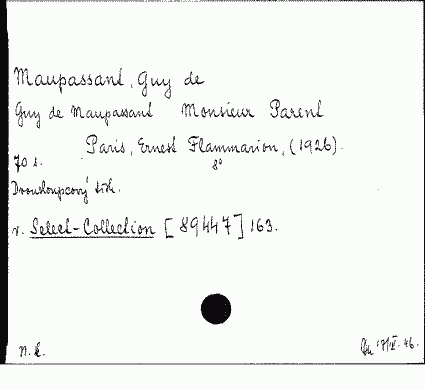 Maupassant, Guy de
Guy de Maupassant Monsieur Parent
Paris, Ernest Flammarion, (1926).
70 s. 8°
Dvousloupcový tisk.
v. Select-Collection [89447] 163.
n. k.
17/V. 46.